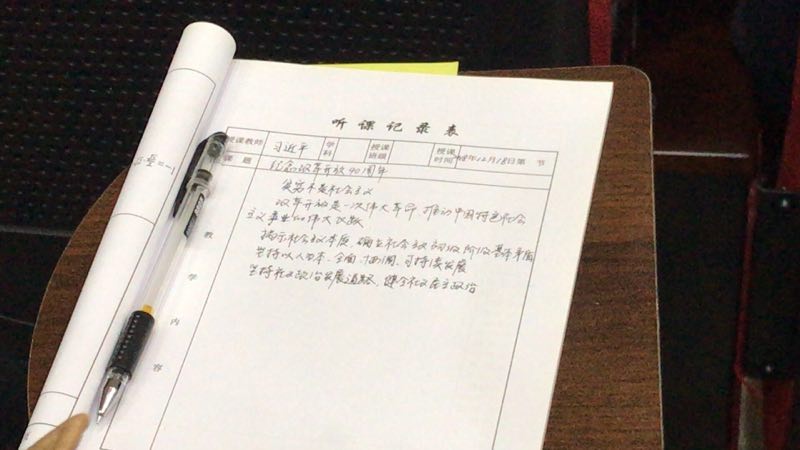 听课记录表
授课教师 习近平 学科 授课班级 授课时间 18年12月18日第 节
课题 纪念改革开放40周年
贫穷不是社会主义
改革开放是一次伟大革命,推动中国特色社会
主义事业的伟大飞跃
揭示社会主义本质,确立社会主义初级阶段基本
坚持以人为本、全面、协调、可持续发展
坚持 政治发展道路,健全社 民主政治
教学内容